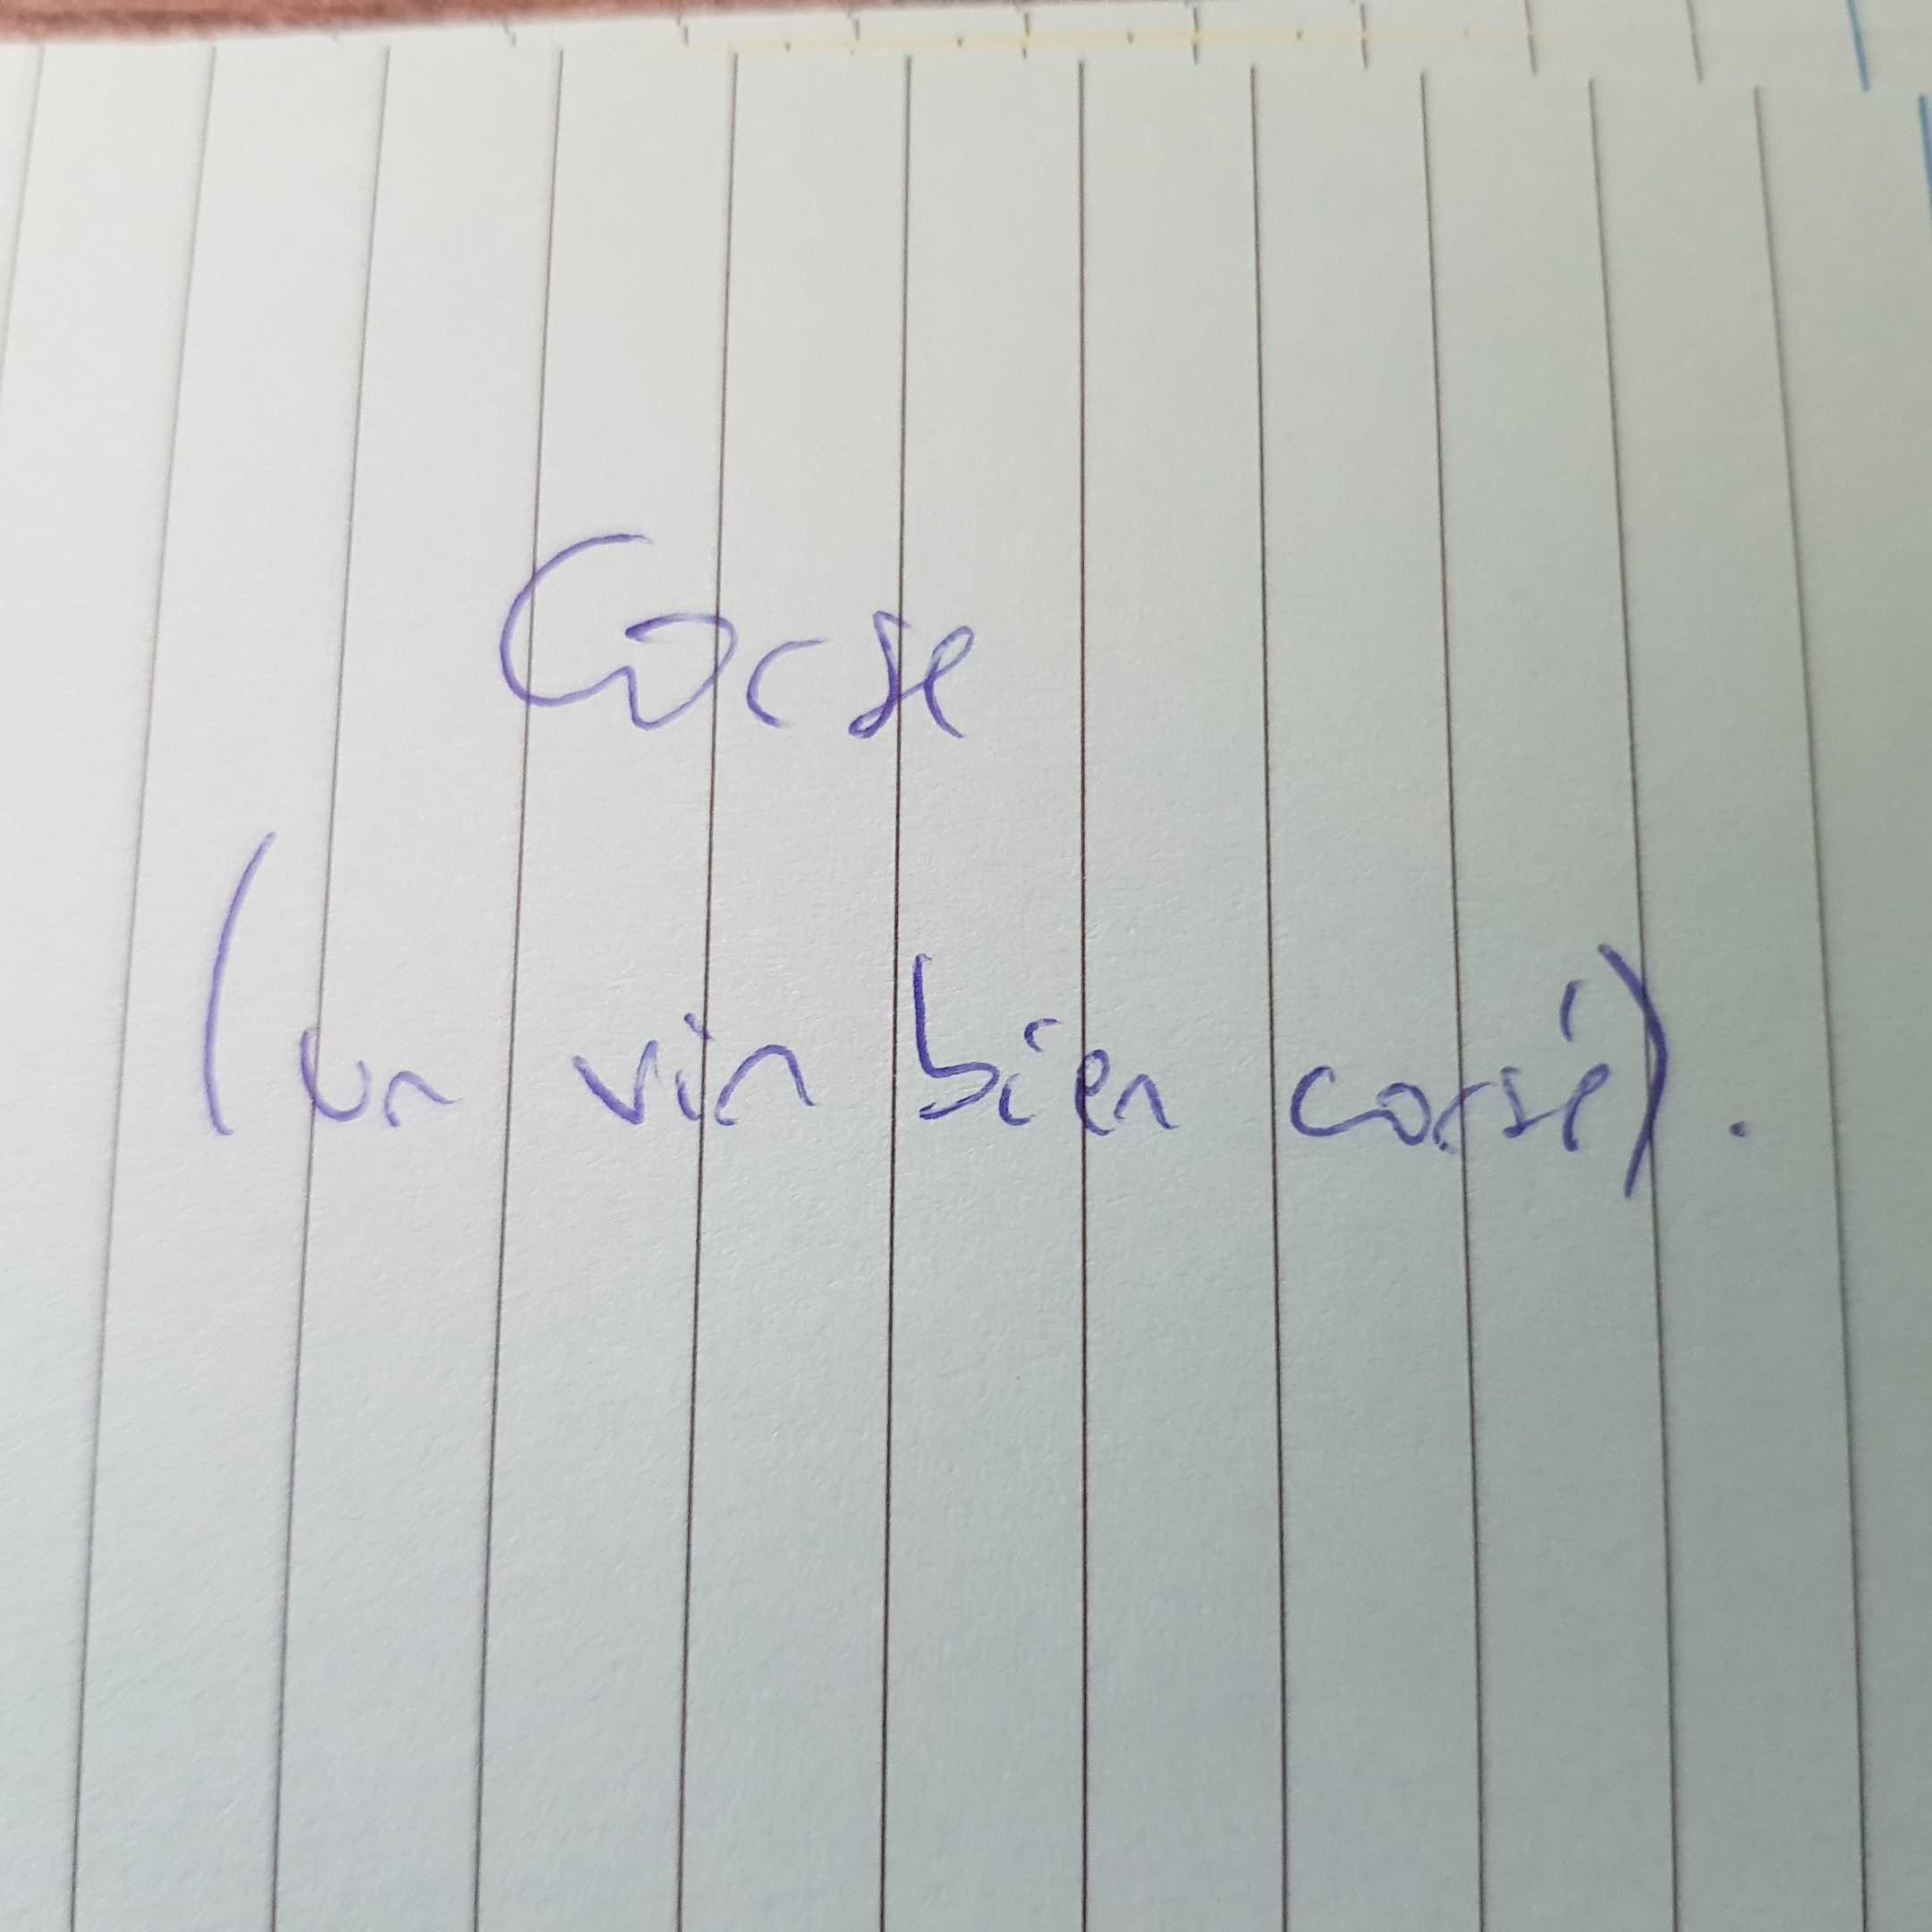 Corse
(un vin bien corsé).